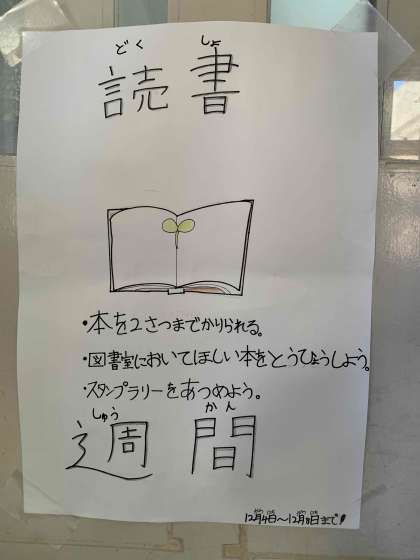 どく しょ
読書
・本を2さつまでかりられる。
・図書室においてほしい本をとうひょうしよう。
・スタンプラリーをあつめよう。
しゅう かん
週間
12月4日〜12月8日まで!